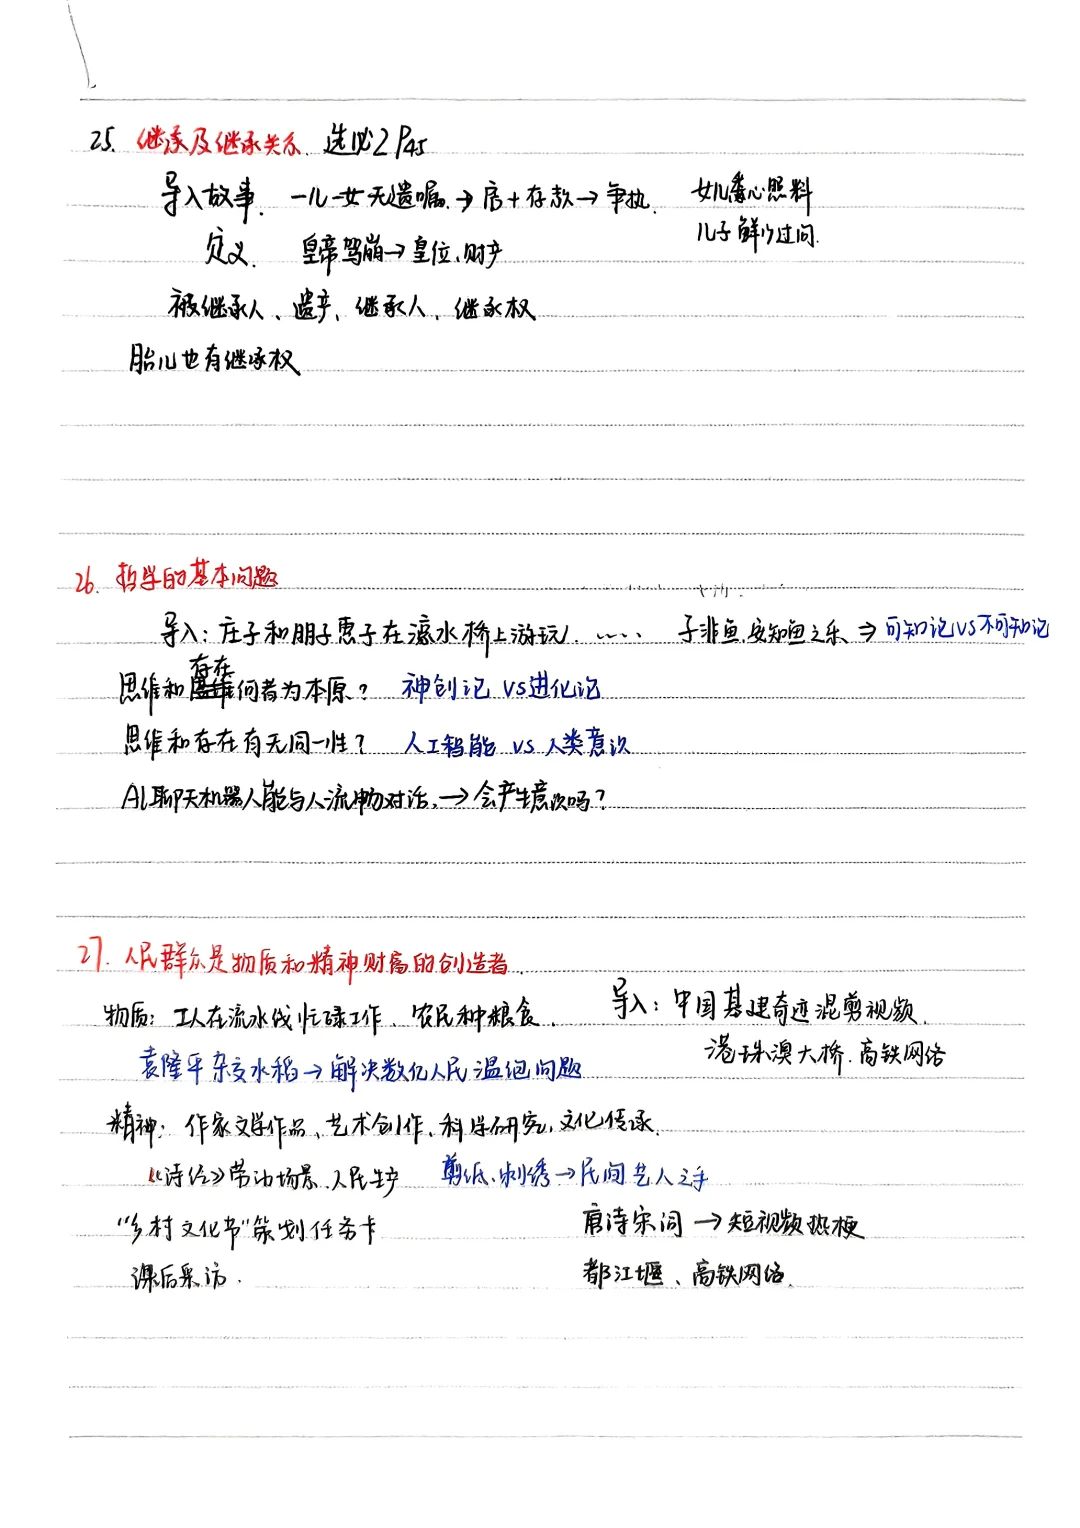 25. 继承及继承关系. 选必2 P45
导入故事. 一儿一女无遗嘱. → 房+存款 → 争执. 女儿悉心照料
儿子鲜少过问.
定义. 皇帝驾崩→皇位、财产
被继承人、遗产、继承人、继承权
胎儿也有继承权
26. 哲学的基本问题
导入: 庄子和朋子惠子在濠水桥上游玩. …… 子非鱼,安知鱼之乐 ⇒ 可知论VS不可知论
存在
思维和何者为本原? 神创论 VS进化论
思维和存在有无同一性? 人工智能 vs 人类意识
AI聊天机器人能与人流畅对话. → 会产生意识吗?
27. 人民群众是物质和精神财富的创造者.
物质: 工人在流水线忙碌工作、农民种粮食. 导入: 中国基建奇迹混剪视频.
港珠澳大桥.高铁网络
袁隆平杂交水稻→解决数亿人民温饱问题
精神: 作家文学作品、艺术创作、科学研究,文化传承.
《诗经》劳动场景.人民生产 剪纸、刺绣→民间艺人之手
“乡村文化节”策划任务卡 唐诗宋词 → 短视频热梗
课后采访. 都江堰、高铁网络.